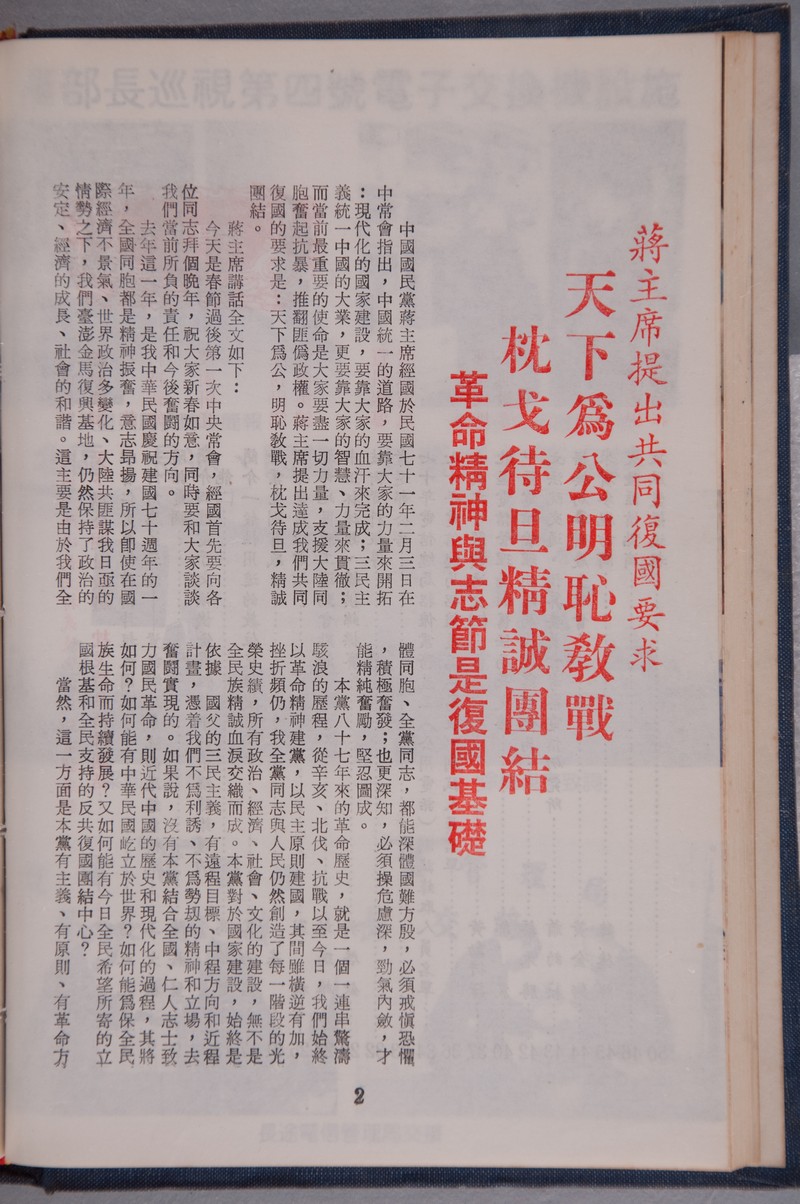 蔣主席提出共同復國要求
天下爲公明恥敎戰
枕戈待旦精誠團結
革命精神與志節是復國基礎
中國國民黨蔣主席經國於民國七十一年二月三日在
中常會指出，中國統一的道路，要靠大家的力量來開拓
：現代化的國家建設，要靠大家的血汗來完成；三民主
義統一中國的大業，更要靠大家的智慧、力量來貫徹；
而當前最重要的使命是大家要盡一切力量，支援大陸同
胞奮起抗暴，推翻匪僞政權。蔣主席提出達成我們共同
復國的要求是：天下爲公，明恥敎戰，枕戈待旦，精誠
團結。
蔣主席講話全文如下：
今天是春節過後第一次中央常會，經國首先要向各
位同志拜個晚年，祝大家新春如意，同時要和大家談談
我們當前所負的責任和今後奮鬪的方向。
去年這一年，是我中華民國慶祝建國七十週年的一
年，全國同胞都是精神振奮，意志昂揚，所以卽使在國
際經濟不景氣、世界政治多變化、大陸共匪謀我日亟的
情勢之下，我們臺澎金馬復興基地，仍然保持了政治的
安定、經濟的成長、社會的和諧。這主要是由於我們全
體同胞、全黨同志，都能深體國難方殷，必須戒愼恐懼
，積極奮發；也更深知，必須操危慮深，勁氣內斂，才
能精純奮勵，堅忍圖成。
本黨八十七年來的革命歷史，就是一個一連串驚濤
駭浪的歷程，從辛亥、北伐、抗戰以至今日，我們始終
以革命精神建黨，以民主原則建國，其間雖橫逆有加，
挫折頻仍，我全黨同志與人民仍然創造了每一階段的光
榮史績，所有政治、經濟、社會、文化的建設，無不是
全民族精誠血淚交織而成。本黨對於國家建設，始終是
依據　國父的三民主義，有遠程目標、中程方向和近程
計畫，憑着我們不爲利誘、不爲勢刧的精神和立場，去
奮鬪實現的。如果說，沒有本黨結合全國、仁人志士致
力國民革命，則近代中國的歷史和現代化的過程，其將
如何？如何能有中華民國屹立於世界？如何能爲保全民
族生命而持續發展？又如何能有今日全民希望所寄的立
國根基和全民支持的反共復國團結中心？
當然，這一方面是本黨有主義、有原則、有革命方
2